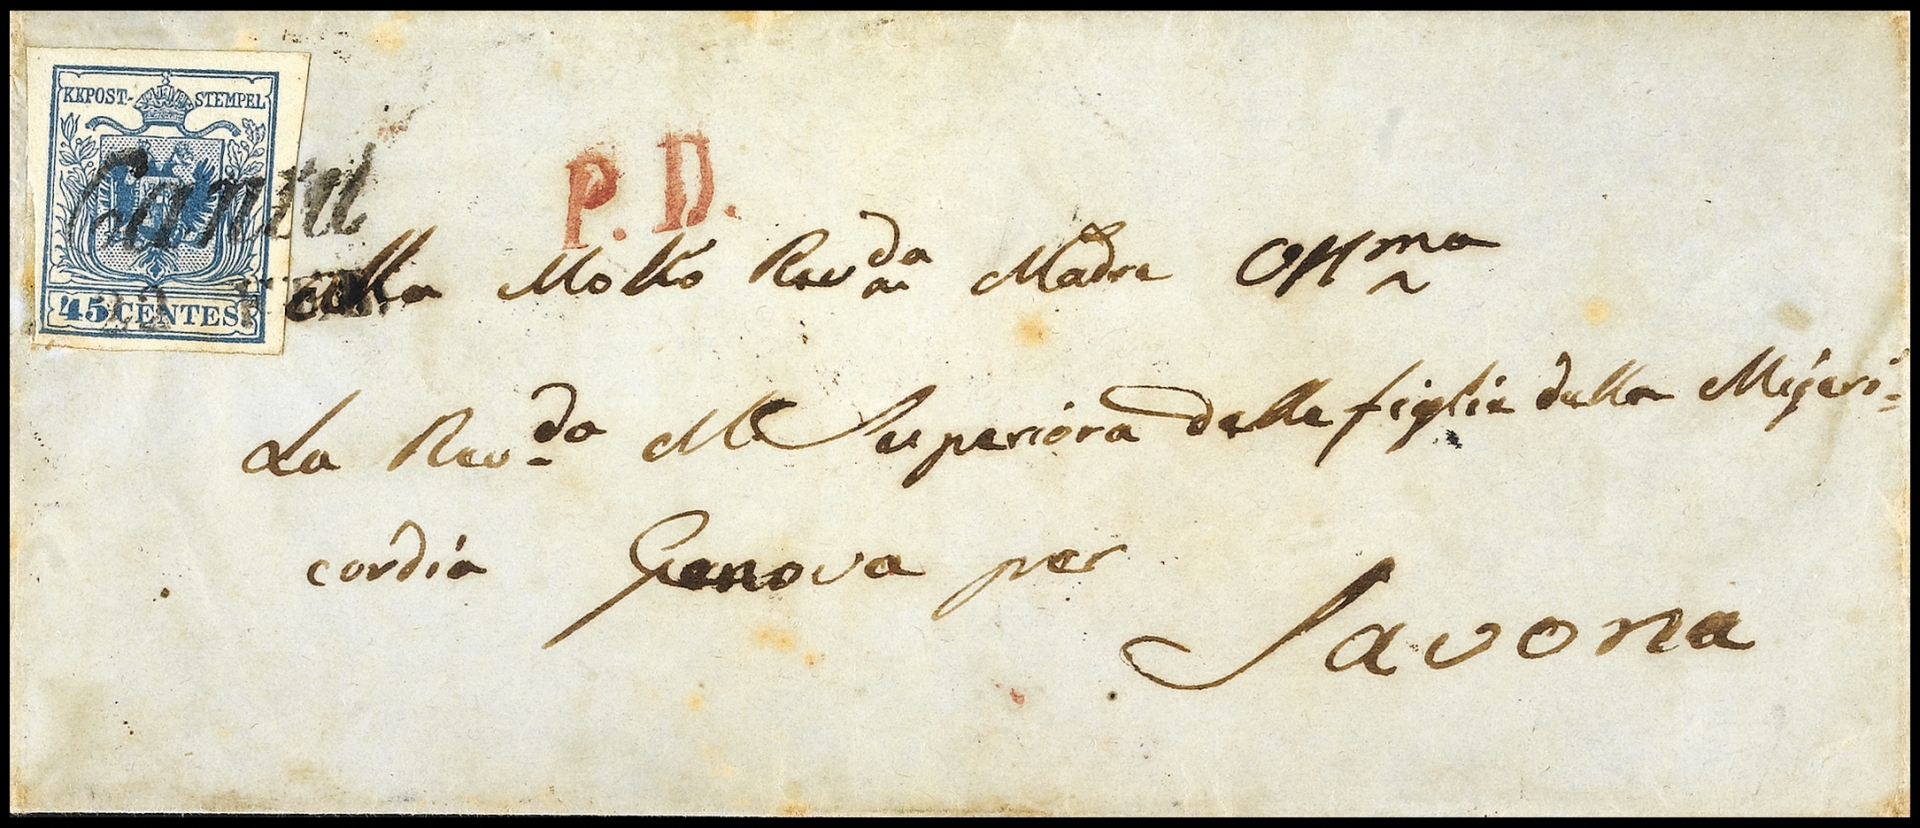 KKPOST-STEMPEL
Cantu
45 CENTES
P. D.
alla Molto Revda Madre Ottma
La Revda M.e Superiora delle figlie della Miseri=
cordia Genova per
Savona